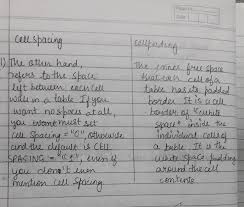 Page No.
Date
Cell spacing
cellpadding
1) The other hand,
refers to the space
left between each cell
wall in a table If you
want no spaces at all,
you must set
cell spacing = "0", otherwise
and the default is CELL
SPACING = "1", even if
you don't even
mention Cell Spacing
The inner free space
that each cell of a
table has its padded
border It is a cell
border of "white
space" inside the
individual cells of
a table. It is the
white space padding
around the cell
contents